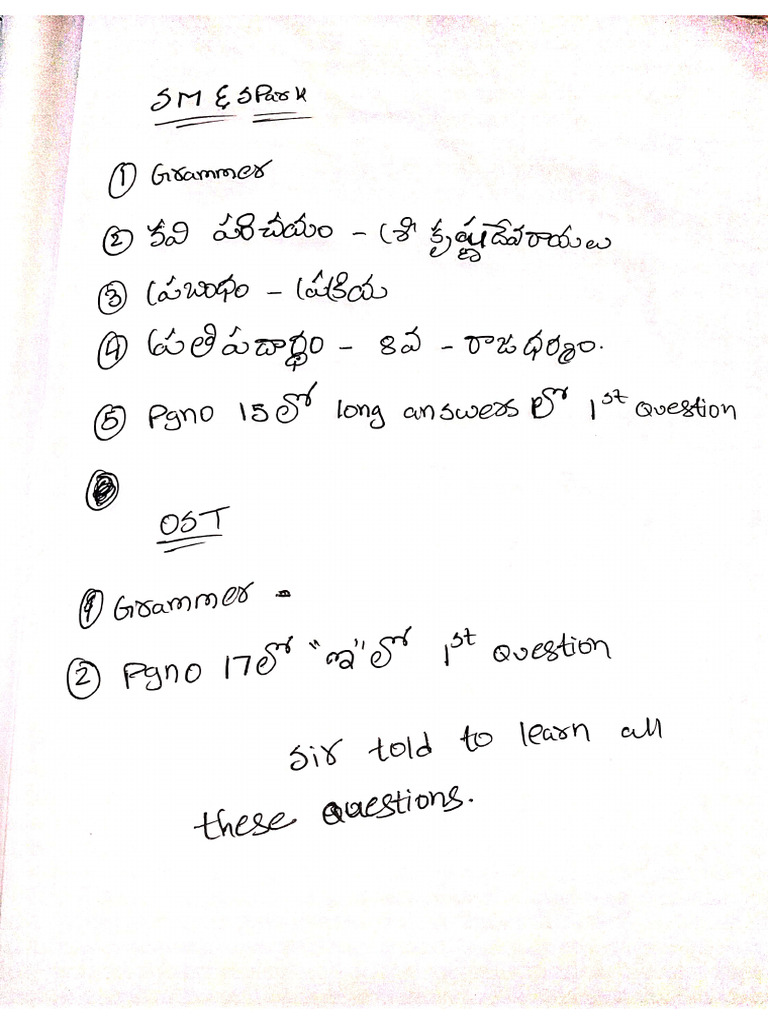 SM & SPark
① Grammer
② కవి పరిచయం - శ్రీ కృష్ణదేవరాయలు
③ ప్రబంధం - ప్రక్రియ
④ ప్రతిపదార్థం - 8వ - రాజధర్మం.
⑤ Pgno 15లో long answers లో 1st Question
OST
① Grammer -
② Pgno 17లో "ఇ"లో 1st Question
sir told to learn all
these Questions.